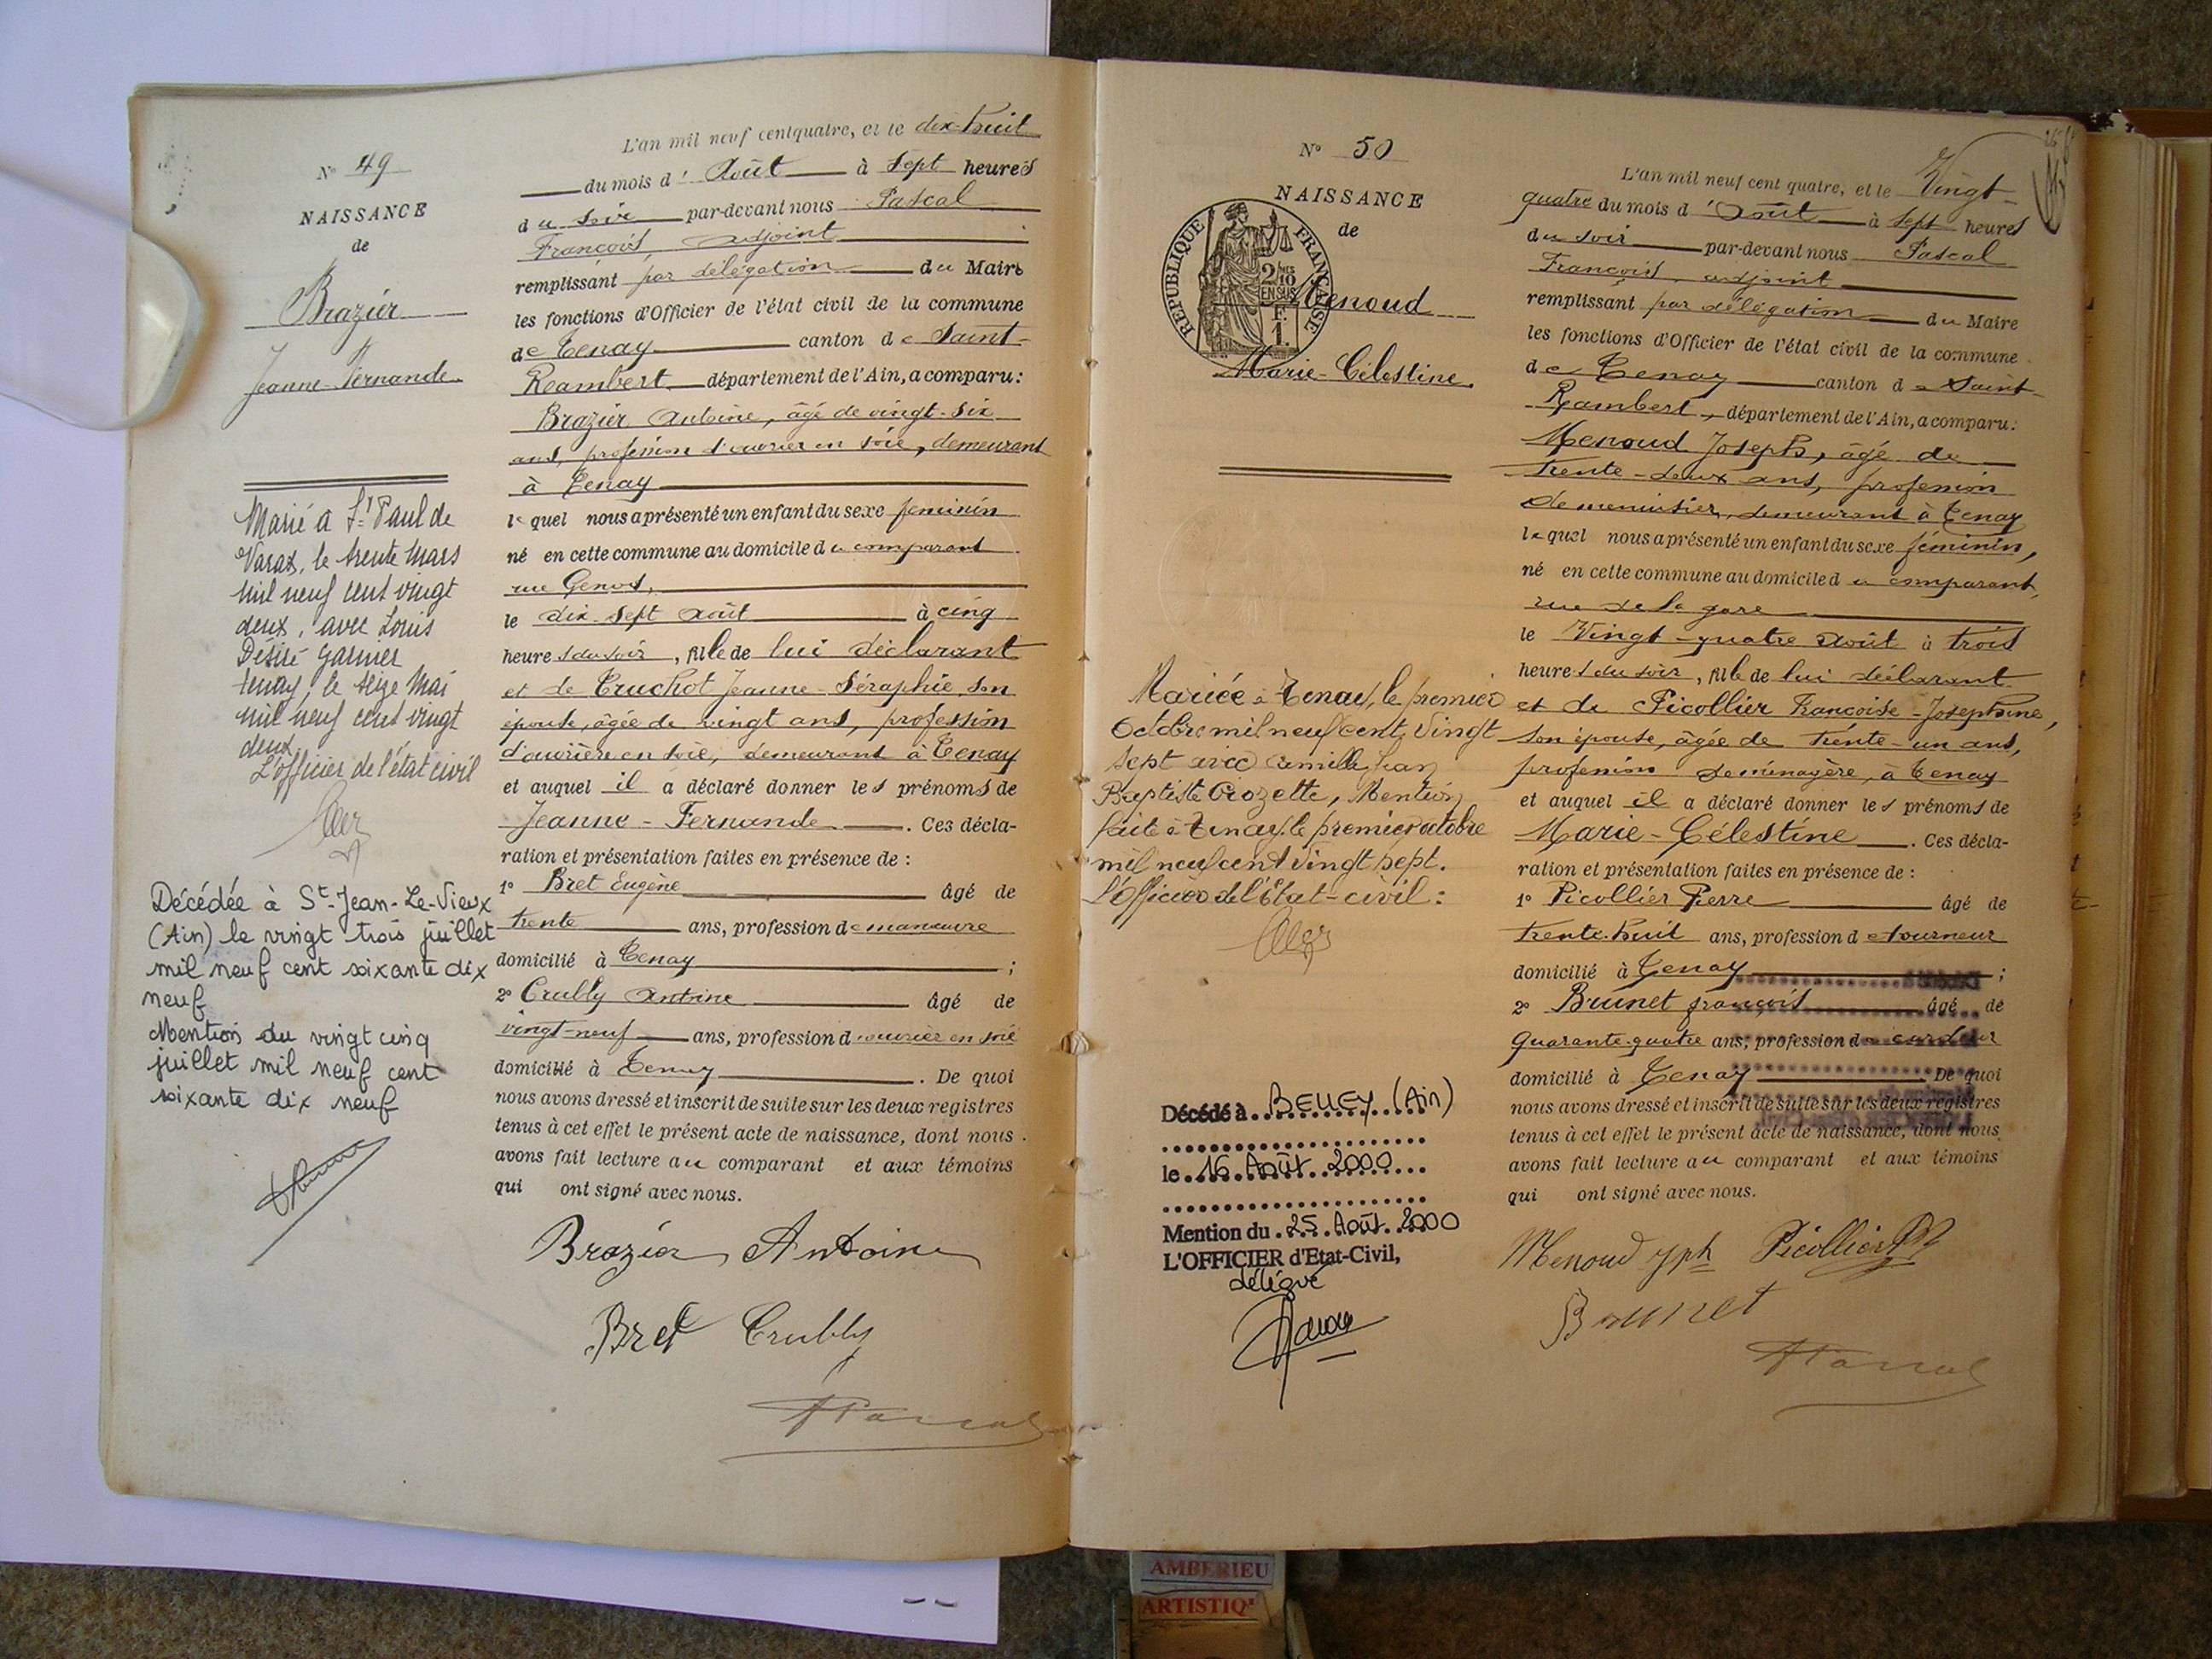 N° 49
NAISSANCE
de
Brazier
Jeanne-Fernande
Marié à St Paul de
Varax, le trente Mars
mil neuf cent vingt
deux, avec Louis
Désiré Garnier
Tenay, le seize Mai
mil neuf cent vingt
deux
L'officier de l'état civil
Décédée à St-Jean-Le-Vieux
(Ain) le vingt trois juillet
mil neuf cent soixante dix
neuf
Mention du vingt cinq
juillet mil neuf cent
soixante dix neuf
L'an mil neuf cent quatre, et le dix-huit
du mois d'Août à sept heures
du soir par-devant nous Pascal
François adjoint
remplissant par délégation du Maire
les fonctions d'Officier de l'état civil de la commune
de Tenay canton de Saint-
Rambert département de l'Ain, a comparu:
Brazier Antoine, âgé de vingt-six
ans, profession d'ouvrier en soie, demeurant
à Tenay
lequel nous a présenté un enfant du sexe féminin
né en cette commune au domicile du comparant
rue Genod,
le dix-sept août à cinq
heures du soir, fille de lui déclarant
et de Truchot Jeanne-Séraphie son
épouse, âgée de vingt ans, profession
d'ouvrière en soie, demeurant à Tenay
et auquel il a déclaré donner les prénoms de
Jeanne-Fernande. Ces décla-
ration et présentation faites en présence de :
1° Bret Eugène âgé de
trente ans, profession de manœuvre
domicilié à Tenay ;
2° Crubly Antoine âgé de
vingt-neuf ans, profession d'ouvrier en soie
domicilié à Tenay. De quoi
nous avons dressé et inscrit de suite sur les deux registres
tenus à cet effet le présent acte de naissance, dont nous
avons fait lecture au comparant et aux témoins
qui ont signé avec nous.
Brazier Antoine
Bret Crubly
Pascal
N° 50
NAISSANCE
de
RÉPUBLIQUE FRANÇAISE
2/10
EN SUS
F.
1.
Menoud
Marie-Célestine.
Mariée à Tenay, le premier
Octobre mil neuf cent vingt
sept avec Camille Jean
Baptiste Crozette, Mention
faite à Tenay, le premier octobre
mil neuf cent vingt sept.
L'Officier de l'État-civil :
Décédé à BELLEY (Ain)
le 16 Août 2000
Mention du 25 Août 2000
L'OFFICIER d'Etat-Civil,
délégué
L'an mil neuf cent quatre, et le Vingt-
quatre du mois d'Août à sept heures
du soir par-devant nous Pascal
François adjoint
remplissant par délégation du Maire
les fonctions d'Officier de l'état civil de la commune
de Tenay canton de Saint-
Rambert, département de l'Ain, a comparu:
Menoud Joseph, âgé de
trente-deux ans, profession
de menuisier, demeurant à Tenay
lequel nous a présenté un enfant du sexe féminin,
né en cette commune au domicile du comparant,
rue de la gare
le Vingt-quatre août à trois
heures du soir, fille de lui déclarant
et de Picollier Françoise-Joséphine,
son épouse, âgée de trente-un ans,
profession de ménagère, à Tenay
et auquel il a déclaré donner les prénoms de
Marie-Célestine. Ces décla-
ration et présentation faites en présence de :
1° Picollier Pierre âgé de
trente-huit ans, profession de tourneur
domicilié à Tenay ;
2° Brunet François âgé de
Quarante-quatre ans, profession de cardeur
domicilié à Tenay De quoi
nous avons dressé et inscrit de suite sur les deux registres
tenus à cet effet le présent acte de naissance, dont nous
avons fait lecture au comparant et aux témoins
qui ont signé avec nous.
Menoud Jph Picollier
Brunet
Pascal
AMBERIEU
ARTISTIQ